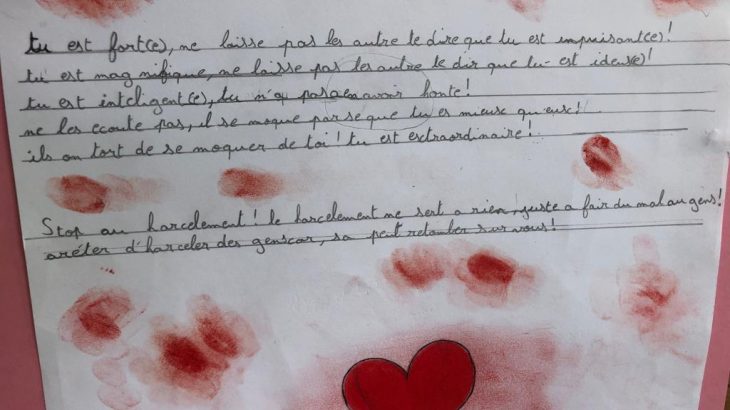 tu est fort(e), ne laisse pas les autre te dire que tu est impuisant(e)!
tu est magnifique, ne laisse pas les autre te dir que tu est ideuse)!
tu est inteligent(e), tu n'a pas a en avoir honte!
ne les ecoute pas, il se moque parse que tu es mieux qu'eux!
ils on tort de se moquer de toi! tu est extraordinaire!
Stop au harcelement! le harcelement ne sert a rien, juste a fair du mal au gens!
aréter d'harceler des gens car, sa peut retomber sur vous!